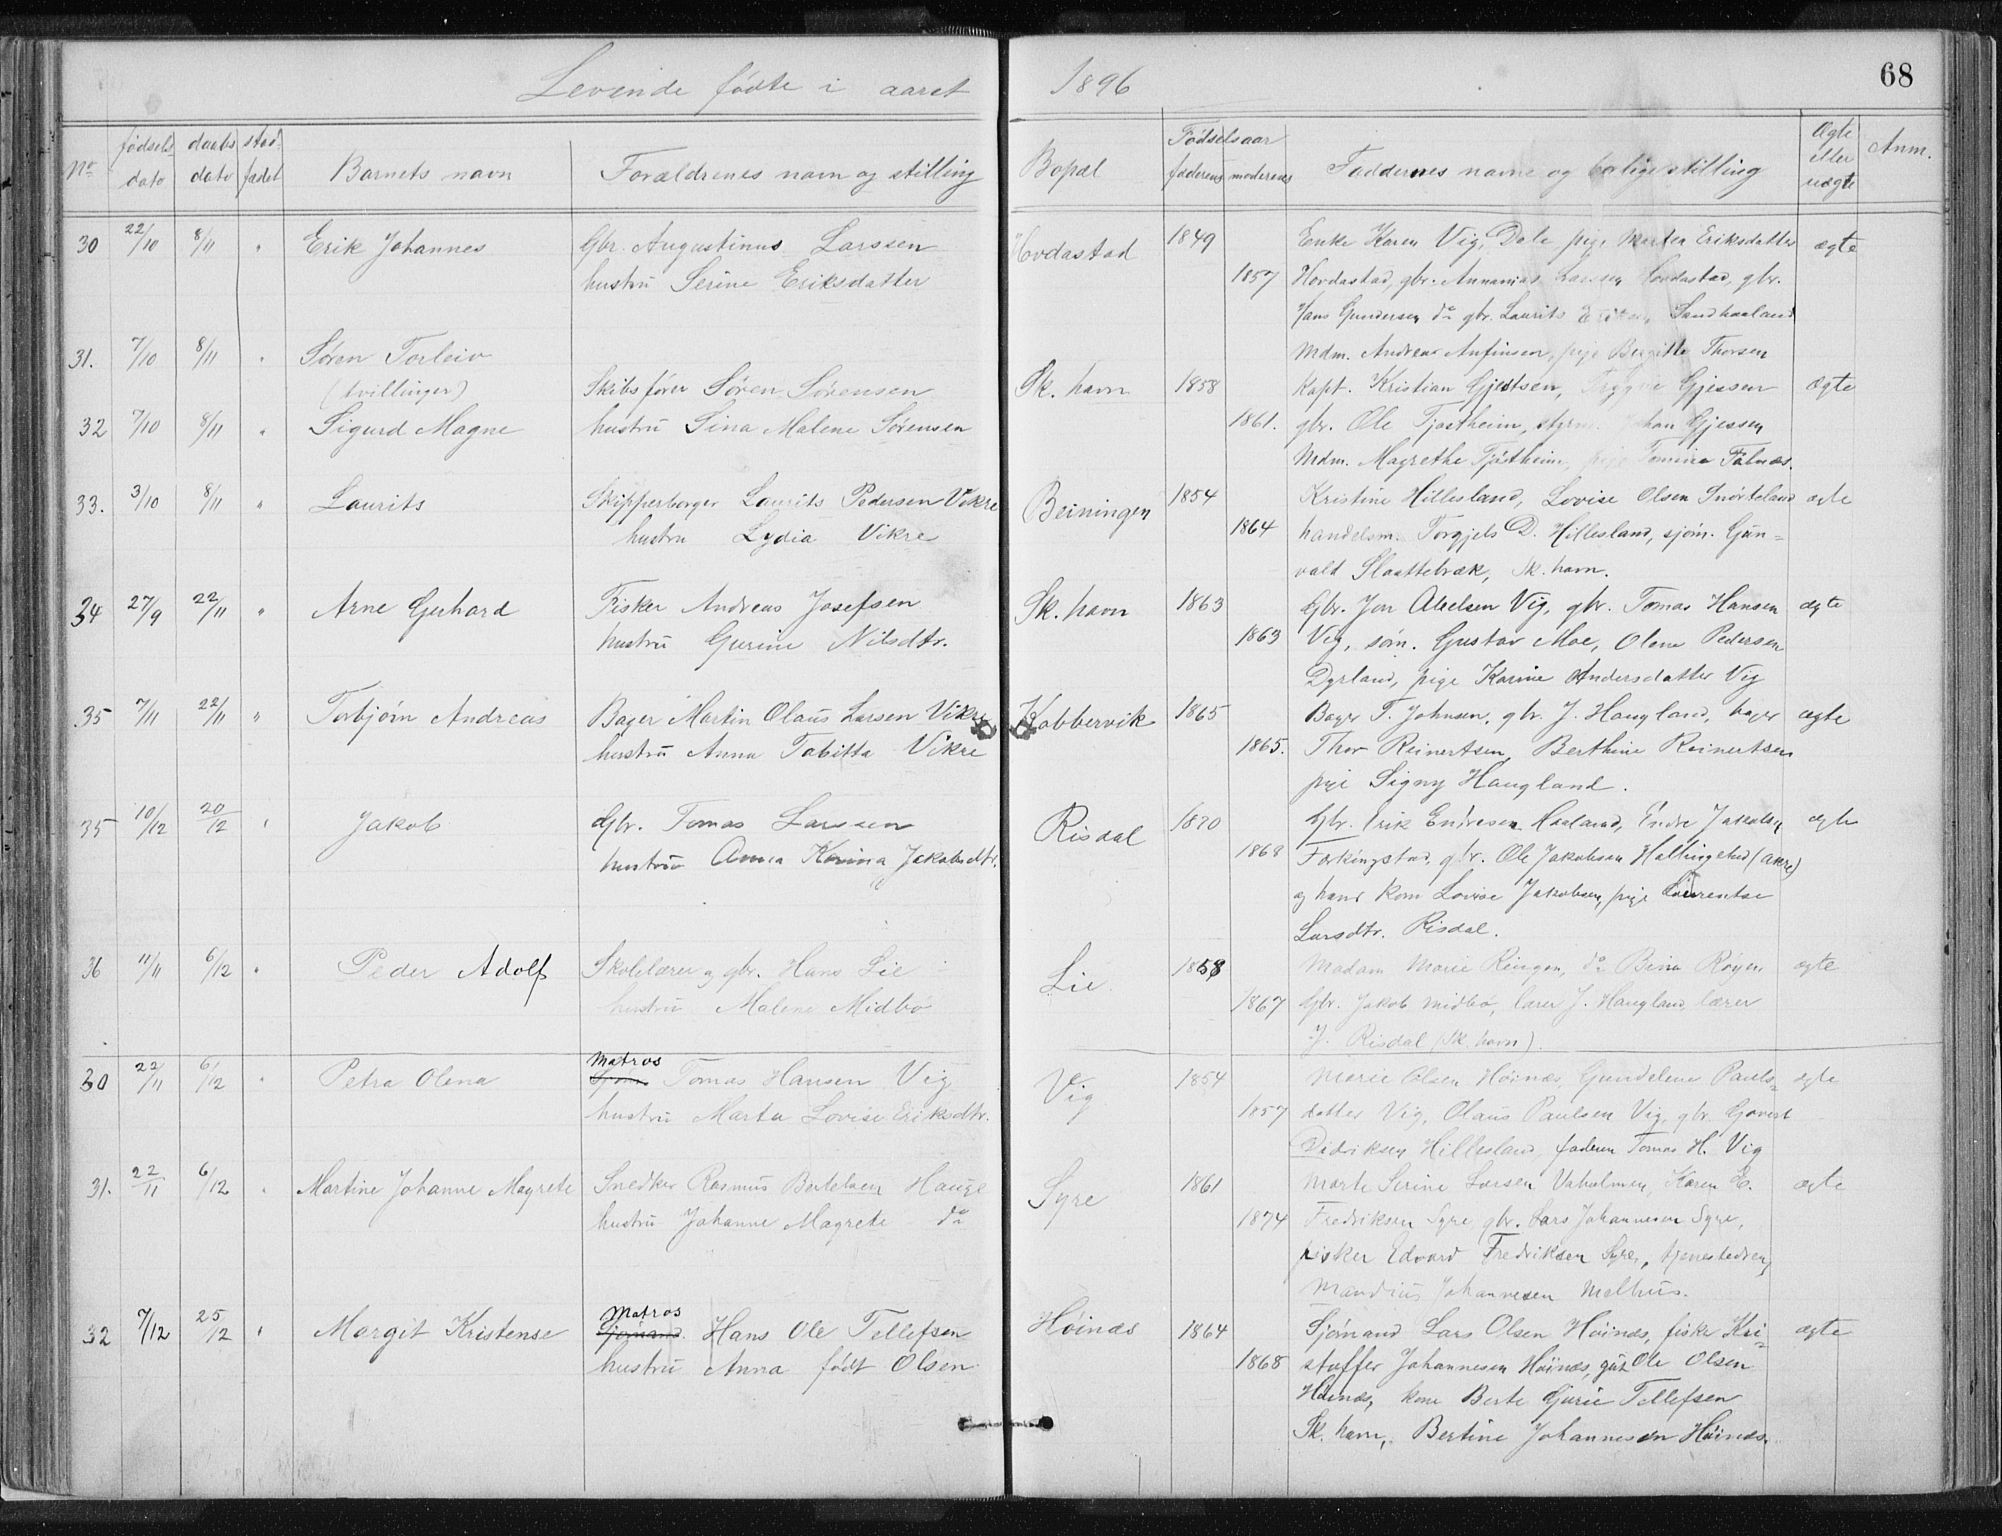 Levende fødte i aaret 1896
68
No fødsels dato daabs dato stadfædet Barnets navn Forældrenes navn og stilling Bopæl Fødselsaar faderens moderens Faddernes navne og borlige stilling Ægte eller uægte Anm.
30 22/10 8/11 " Erik Johannes Gbr. Augustinus Larssen Hovdastad 1849 Enke Karen Vig, Dale pige Martea Eriksdatter ægte
hustru Serine Eriksdatter 1857 Hovdastad, gbr. Annanias Larsen Hovdastad, gbr.
Hans Gundersen do gbr. Laurits Sandhaaland
31. 7/10 8/11 " Søren Torleiv Mdm. Andrea Anfinsen, pige Bergitte Thorsen
(tvillinger) Skibsfører Søren Sørensen Sk. havn 1858 Kapt. Kristian Gjertsen, Trygve Gjessen Ægte
32 7/10 8/11 " Sigurd Magne hustru Sina Malene Sørensen 1861. gbr. Ole Tjøstheim, styrm. Johan Gjessen
Mdm. Magrethe Tjøstheim, pige Tomine Falnæs.
33. 3/10 8/11 " Laurits Skipperborger Laurits Pedersen Vikre Beiningen 1854 Kristine Hillesland, Lovise Olsen Snørteland ægte
hustru Lydia Vikre 1864 handelsm. Torgjels D. Hillesland, sjøm. Gun-
vald Slaattebræk, Sk. havn.
34 27/9 22/11 " Arne Gerhard Fisker Andreas Josefsen Sk. havn 1863 Gbr. Jon Abelsen Vig, gbr. Tomas Hansen ægte
hustru Gurine Nilsdtr. 1863 Vig, søm. Gustav Moe, Olene Pedersen
Dyrland, pige Karine Andersdatter Vig
35 7/11 22/11 " Torbjørn Andreas Bager Martin Olaus Larsen Vikre Kobbervik 1865 Bager T. Johnsen, gbr. J. Haugland, bager ægte
hustru Anna Tabitta Vikre 1865. Thor Reinertsen, Berthine Reinertsen
pige Signy Haugland.
35 10/12 20/12 " Jakob Gbr. Tomas Larssen Risdal 1870 Gbr. Erik Endresen Haaland, Endre Jakobsen ægte
hustru Anna Karina Jakobsdtr. 1868 Ferkingstad, gbr. Ole Jakobsen (Akre)
og hans kone Lovise Jakobsen, pige Laurentse
Larsdtr. Risdal.
36 11/11 6/12 " Peder Adolf Skolelærer og gbr. Hans Lie Lie 1858 Madam Marie Ringen, do Bina Røgen ægte
hustru Malene Midbø 1867 Gbr. Jakob Midbø, lærer J. Haugland, lærer
J. Risdal (Sk. havn).
Matros
30 22/11 6/12 " Petra Olena Tomas Hansen Vig Vig 1854 Marie Olsen Høinæs, Gundelene Pauls- ægte
hustru Marta Lovise Eriksdtr. 1857 datter Vig, Olaus Paulsen Vig, gbr. Govert
Didriksen Hillesland, faderen Tomas H. Vig
31. 22/11 6/12 " Martine Johanne Magrete Snedker Rasmus Bertelsen Hauge Syre 1861 Marte Serine Larsen Vaholmen, Karen E. ægte
hustru Johanne Magrete do 1874 Fredriksen Syre, gbr. Lars Johannesen Syre,
fisker Edvard Fredriksen Syre, tjenestedreng
Mandius Johannesen Melhus.
Matros
32 7/12 25/12 " Margit Kristense Sjømand Hans Ole Tellefsen Høinæs 1864 Sjømand Lars Olsen Høinæs, fisker Kri- ægte
hustru Anna født Olsen 1868 stoffer Johannesen Høinæs, gut Ole Olsen
Høinæs, kone Berte Gurie Tellefsen
Sk. havn, Bertine Johannesen Høinæs.